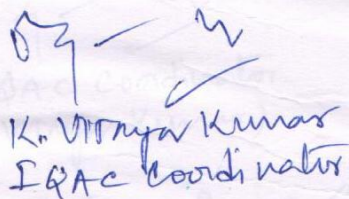 K. Vijaya Kumar
IQAC Coordinator